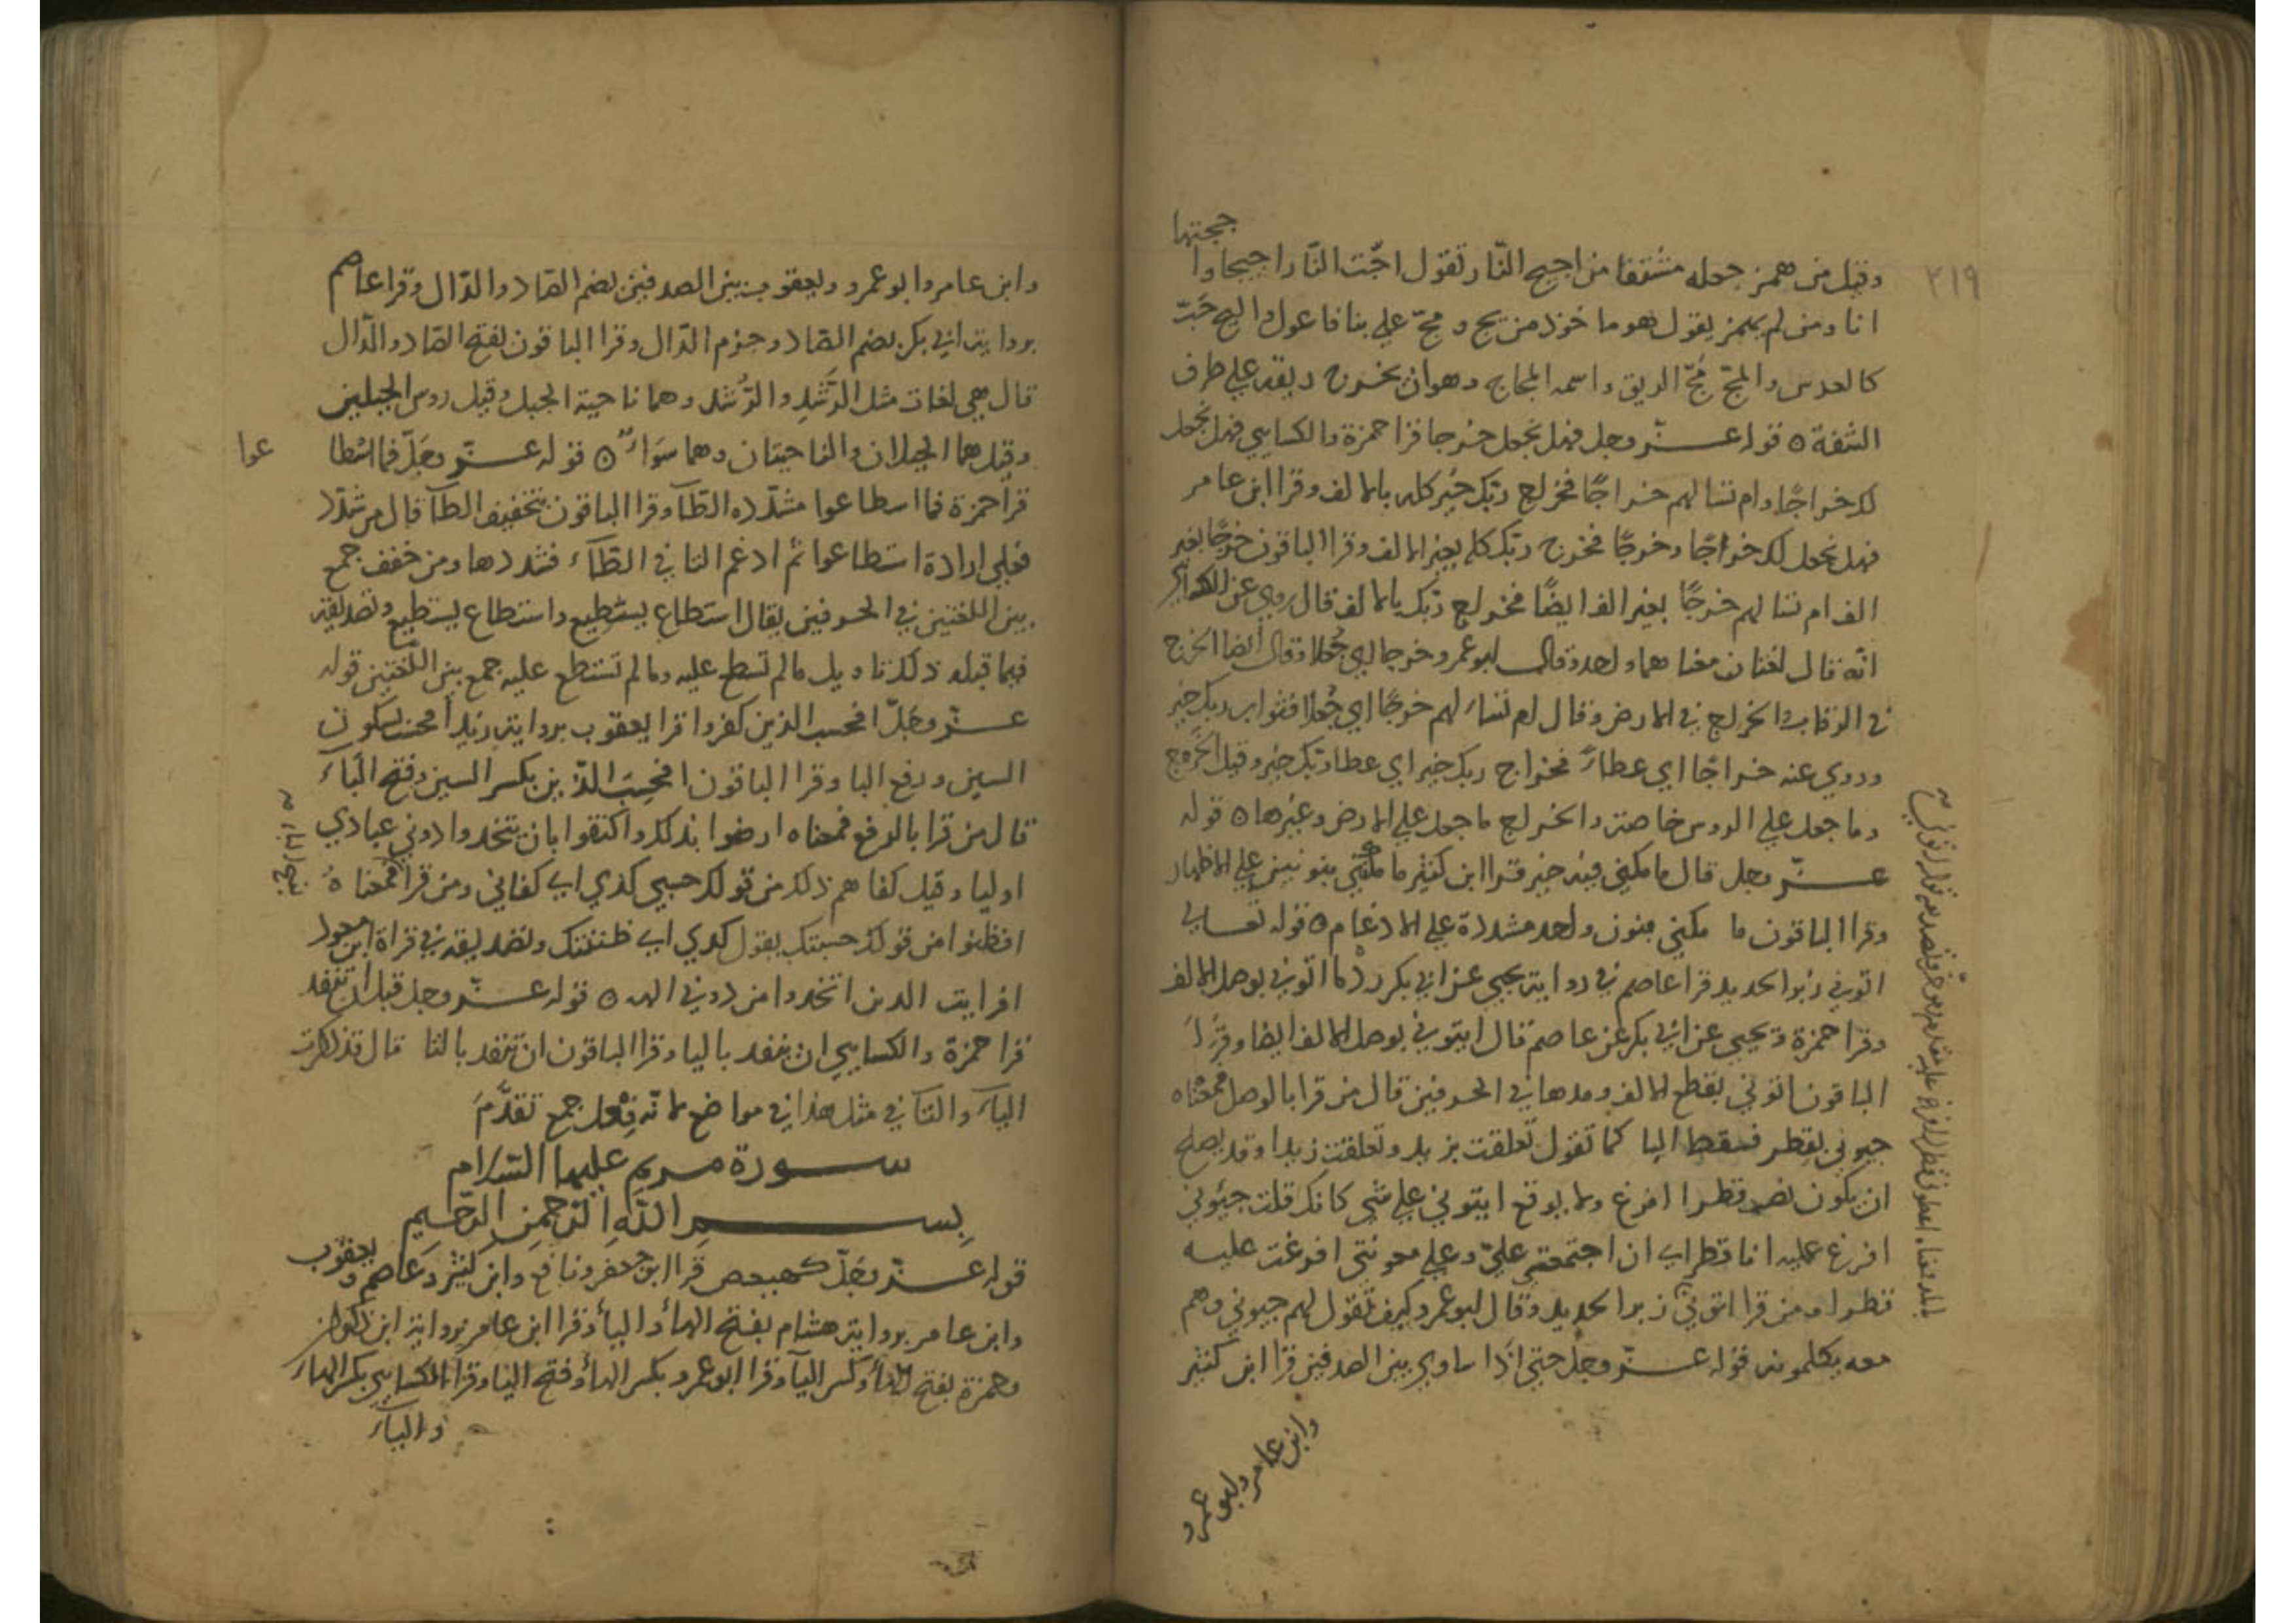 ججتها
٢١٩
وقيل من همز جعله مشتقا من اجيج النار تقول اجّت النّار اجيجا وا
انا ومن لم يهمز يقول هو ماخوذ من يج و مجّ علي بنا فاعول واليج حَبّ
كالعدس والمجّ مُجّ الريق واسمه المجاج وهو ان يخرج ريقه علي طرف
الشفة ٥ قوله عــزّ وجل فهل نجعل خرجا قرا حمزة والكسايي فهل نجعل
لك خراجًا وام تسالهم خراجًا فخراج ربّك خير كله بالالف وقرا ابن عامر
فهل نجعل لك خراجًا وخرجًا فخرج ربّك كله بغير الالف وقرا الباقون خرجًا بغير
الف ام تسالهم خرجًا بغير الف ايضًا فخراج ربّك بالالف قال روي عن
انّه قال لغتان معناهما واحد وقال ابو عمرو خرجا اي جُعلا وقال ايضا الخرج
في الرقاب والخراج في الارض وقال ام تسالهم خرجًا اي جُعلا فثواب ربك خير
وروي عنه خراجًا اي عطاءً فخراج ربك خير اي عطا ربّك خير وقيل الخرج
وما جعل علي الروس خاصة والخراج ما جعل علي الارض وغيرها ٥ قوله
عــزّ وجل قال ما مكني فيه خير قرا ابن كثير ما مكنني بنونين علي الاظهار
وقرا الباقون ما مكني بنون واحد مشددة علي الادغام ٥ قوله تعالي
اتوني زبر الحديد قرا عاصم في رواية يحيي عن ابي بكر ردما اتوني بوصل الالف
وقرا حمزة ويحيي عن ابي بكر عن عاصم قال ايتوني بوصل الالف ايضا وقرَاَ
الباقون اتوني بقطع الالف ومدها في الحرفين قال من قرا بالوصل فمعناه
جيوني بقطر فسقط البا كما تقول تعلقت بزيد وتعلقت زيدا وقد يصلح
ان يكون نصب قطرا افرغ ولا يوقع ايتوني علي شي كانك قلت جيئوني
افرغ عليه انا قطرا اي ان اجتمعتم عليّ وعلي معونتي افرغت عليه
قطرا ومن قرا اتوني زبر الحديد وقال ابو عمرو كيف تقول لهم جيوني وهم
معه يكلمونه قوله عــزّ وجلّ حتي اذا ساوي بين الصدفين قرا ابن كثير
وابن عامر وابو عمرو
وابن عامر وابو عمرو ويعقوب بين الصدفين بضم الصّاد والدّال وقرا عاصم
برواية ابي بكر بضم الصّاد وجزم الدّال وقرا الباقون بفتح الصّاد والدّال
قال هي لغات مثل الرَّشَدِ والرُّشد وهما ناحية الجبل وقيل روس الجبلين
وقيل هما الجبلان والناحيتان وهما سَوَاءٌ ٥ قوله عــزّ وجَلّ فما اسْطا
عوا
قرا حمزة فما اسطاعوا مشدّده الطّآ وقرا الباقون بتخفيف الطآ قال من شدّد
فعلي ارادة استطاعوا ثم ادغم التا في الطّاء فشددها ومن خفف جمع
بين اللغتين في الحرفين يقال اسطاع يسْطيع واستطاع يستطيع وتصديقه
فيما قبله ذلك تاويل مالم تسطع عليه ومالم تستطع عليه جمع بين اللّغتين قوله
عــزّ وجَلّ افحسب الذين كفروا قرا يعقوب برواية زيد أفحسْب بسكون
السين ورفع البا وقرا الباقون افحَسِبَ الذين بكسر السين وفتح البآء
قال من قرا بالرفع فمعناه ارضوا بذلك واكتفوا بان يتخدوا دوني عبادي
اوليا وقيل كفاهم ذلك من قولك حسبي كذي اي كفاني ومن قرا فمعناه
افظنوا من قولك حسبتك يقول كدي اي ظننتك وتصديقه في قراة ابن مسعود
افرايت الدين اتخدوا من دوني الهه ٥ قوله عــزّ وجل قبل ان تنفد
قرا حمزة والكسايي ان ينفد باليا وقرا الباقون ان تنفد بالتا قال قد ذكرت
اليآء والتا في مثل هذا في مواضع لانّه فِعْل جمع تقدَّمَ
ســورة مريم عليها السّلام
بِســـمِ اللّهِ الرّحمنِ الرّحيم
قوله عــزّ وجَلّ كهيعص قرا ابن جعفر ونافع وابن كثير وعاصم ويعقوب
وابن عامر برواية هشام بفتح الهاء واليآء وقرا ابن عامر برواية ابن ذكوان
وحمزة بفتح الهآء وكسر اليآ وقرا ابو عمرو بكسر الهآء وفتح اليا وقرا الكسايي بكسر الهاء
واليآء